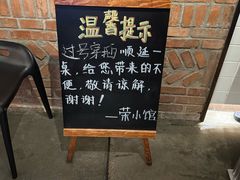 温馨提示
过号穿插顺延一
桌，给您带来的不
便，敬请谅解，
谢谢！
—荣小馆